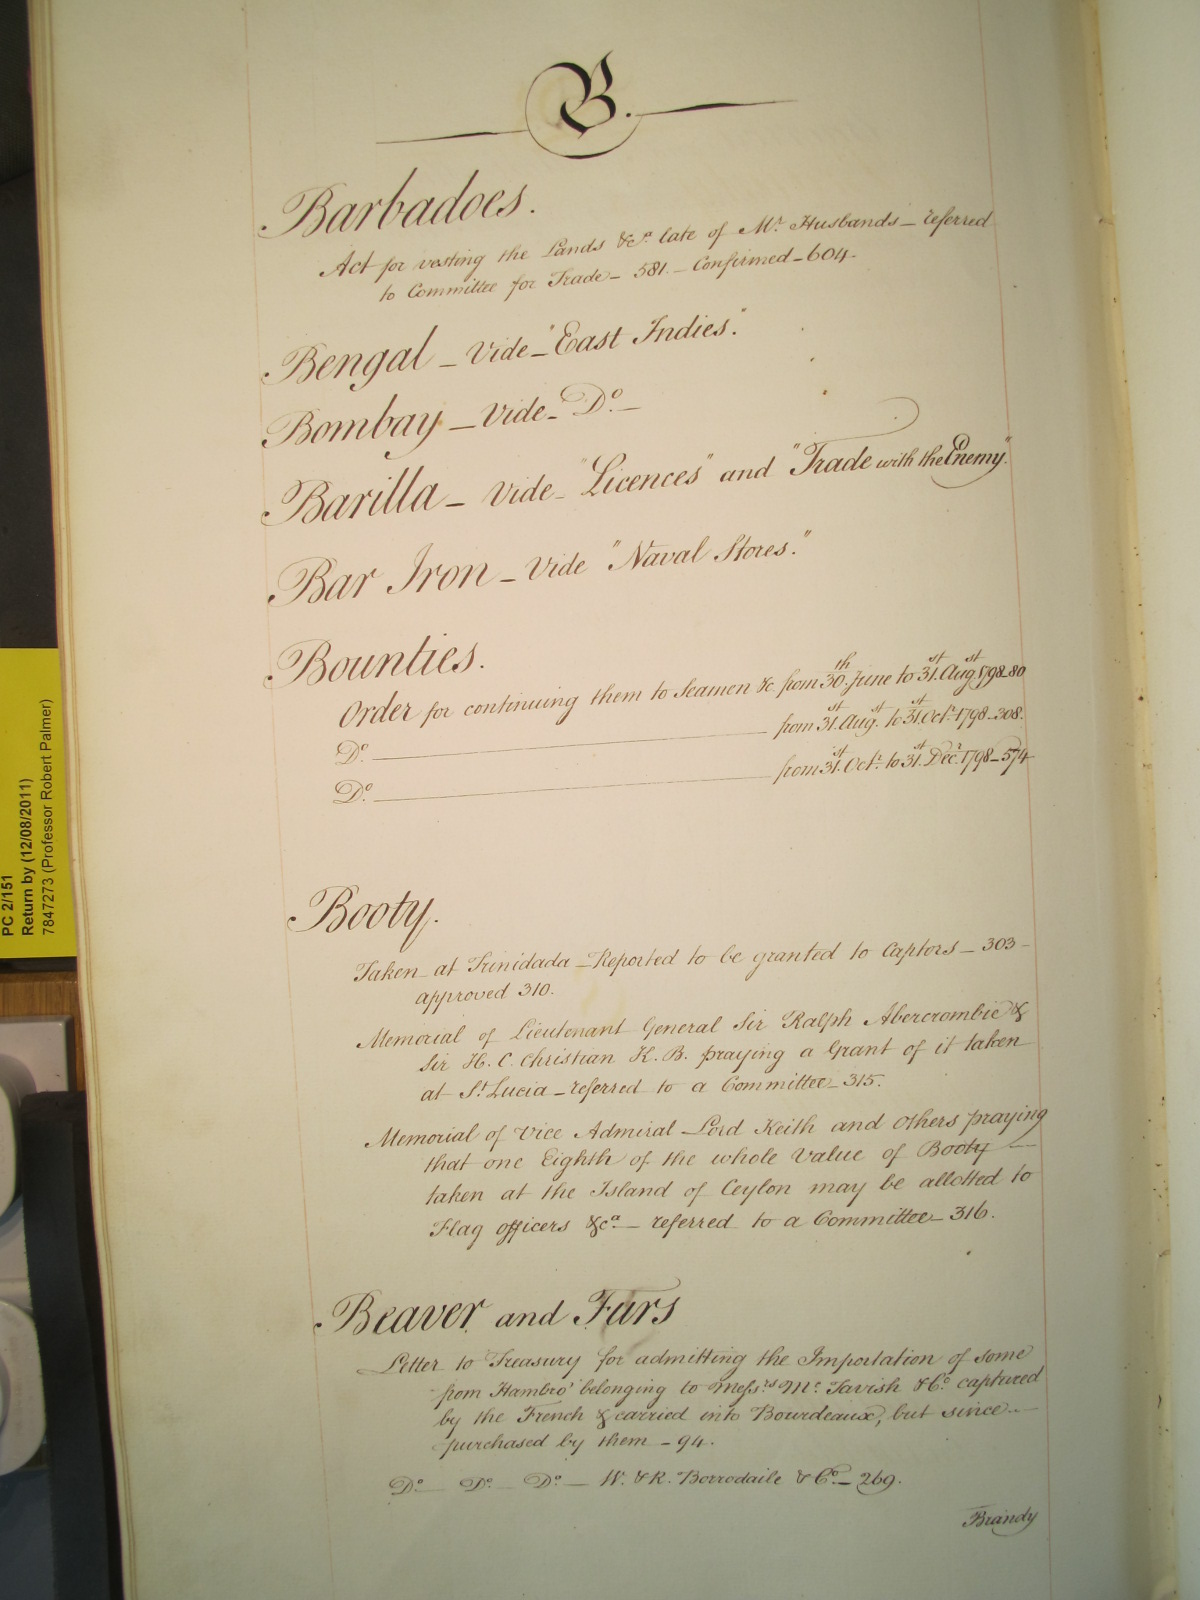 B.
Barbadoes.
Act for vesting the Lands &c.a late of Mr. Husbands _ referred
to Committee for Trade _ 581. _ Confirmed _ 604.
Bengal _ Vide _ "East Indies."
Bombay _ Vide _ Do. _
Barilla _ Vide _ "Licences" and "Trade with the Enemy".
Bar Iron _ Vide "Naval Stores."
Bounties.
Order for continuing them to Seamen &c. from 30th. June to 31st. Augst. 1798_80
Do. ____ from 31st. Augst. to 31st. Octr. 1798_308.
Do. ____ from 31st. Octr. to 31st. Decr. 1798_574
Booty.
Taken at Trinidada _ Reported to be granted to Captors _ 303 _
approved 310.
Memorial of Lieutenant General Sir Ralph Abercrombie &
Sir H. C. Christian K. B. praying a Grant of it taken
at St. Lucia _ referred to a Committee _ 315.
Memorial of Vice Admiral Lord Keith and others praying
that one Eighth of the whole Value of Booty _
taken at the Island of Ceylon may be allotted to
Flag officers &c.a _ referred to a Committee _ 316.
Beaver and Furs
Letter to Treasury for admitting the Importation of some
from Hambro' belonging to Messrs. Mc. Tavish & Co. captured
by the French & carried into Bourdeaux, but since _
purchased by them _ 94.
Do. _ Do. _ Do. _ W. & R. Borrodaile & Co. _ 269.
Brandy
PC 2/151
Return by (12/08/2011)
7847273 (Professor Robert Palmer)